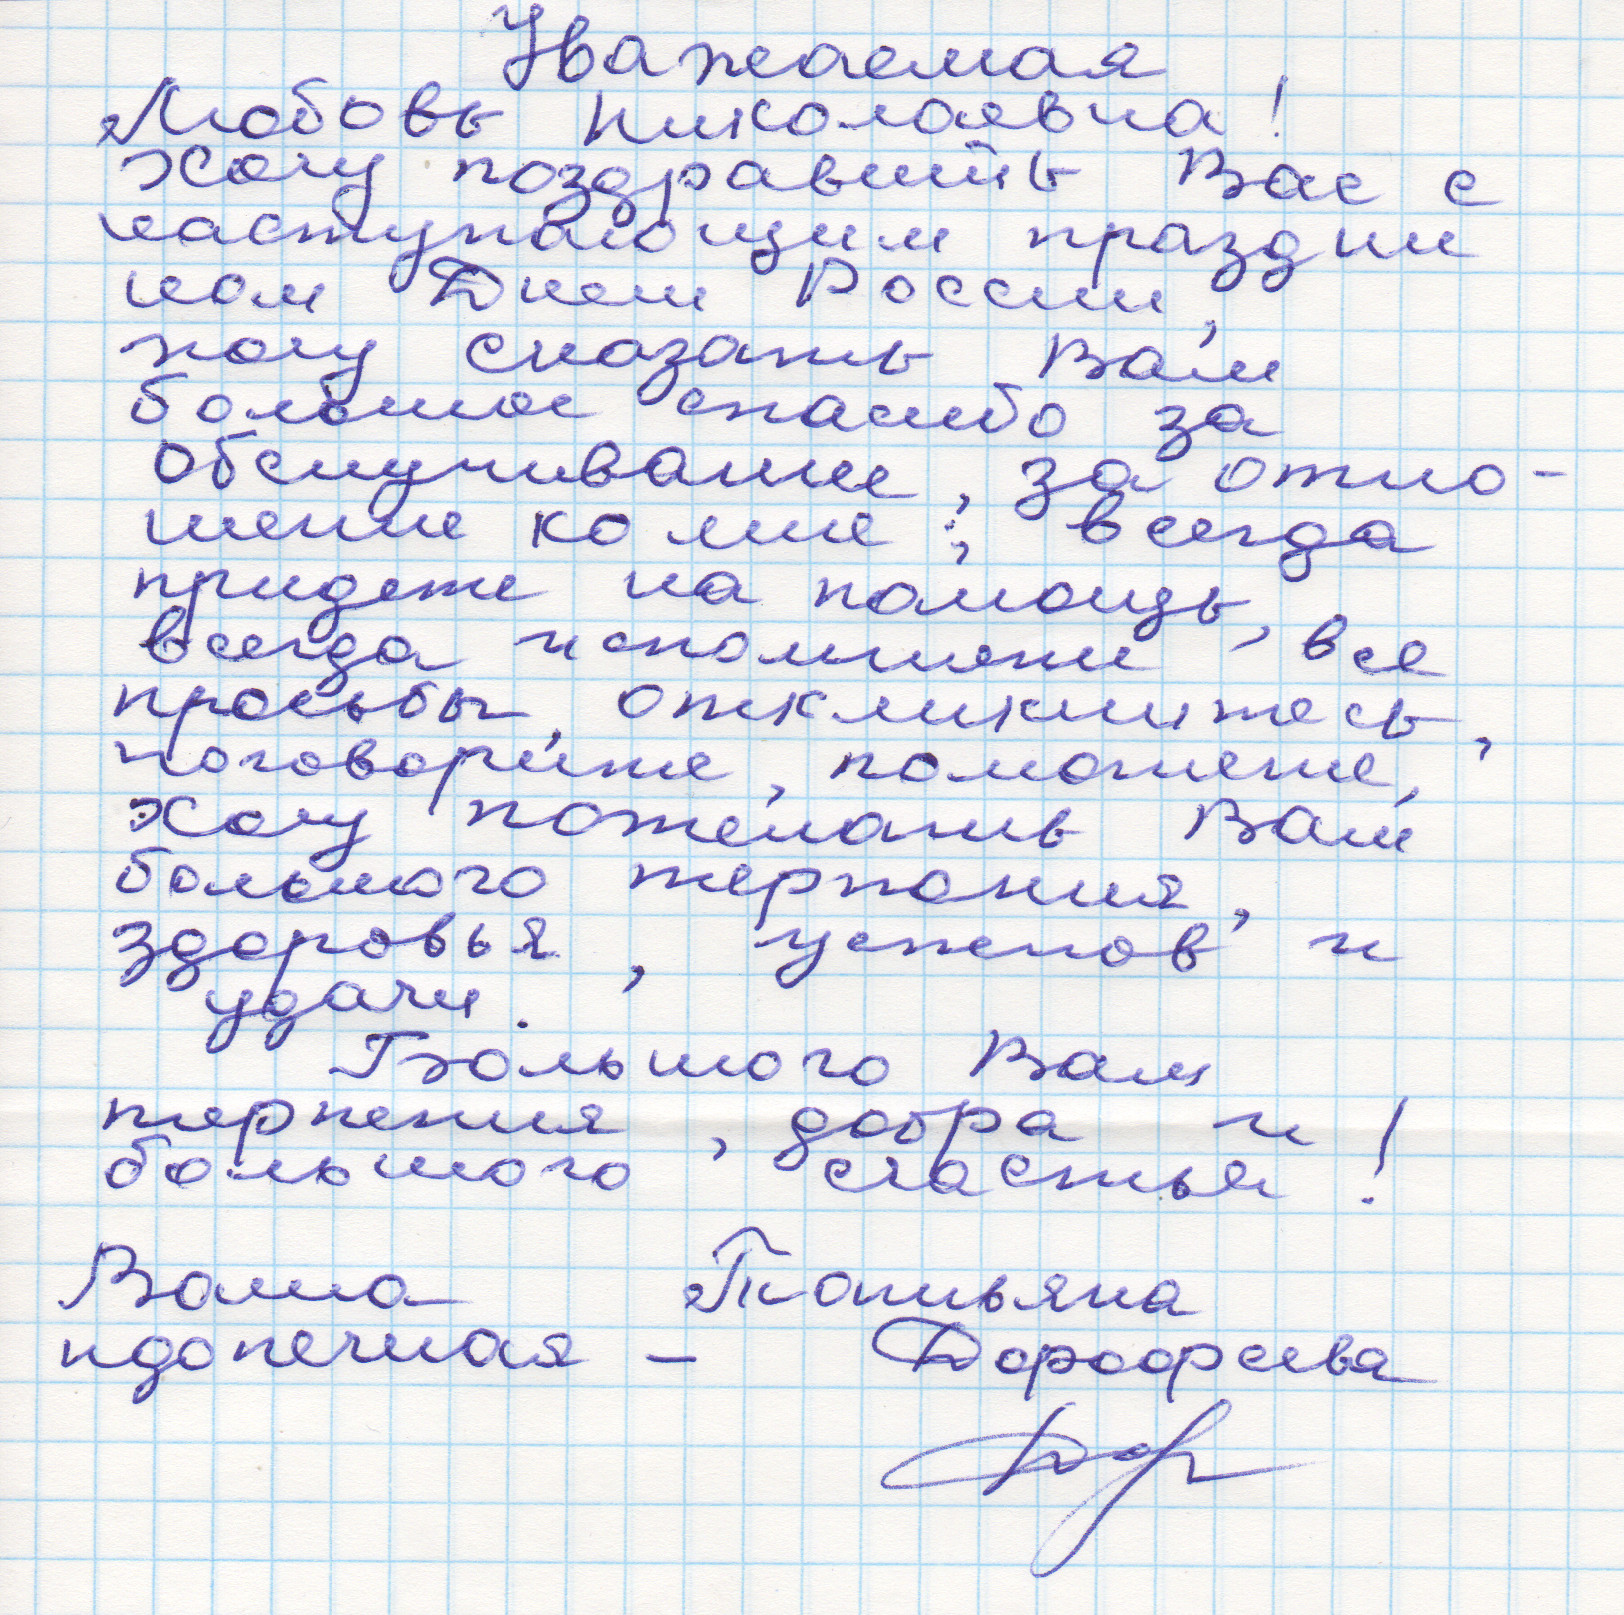 Уважаемая
Любовь Николаевна!
Хочу поздравить Вас с
наступающим праздни
ком Днем России,
хочу сказать Вам
большое спасибо за
обслуживание, за отно-
шение ко мне; всегда
придете на помощь,
всегда исполните все
просьбы, откликнитесь,
поговорите, поможете,
Хочу пожелать Вам
большого терпения,
здоровья, успехов и
удачи.
Большого Вам
терпения, добра и
большого счастья!
Ваша Татьяна
подопечная – Дорофеева